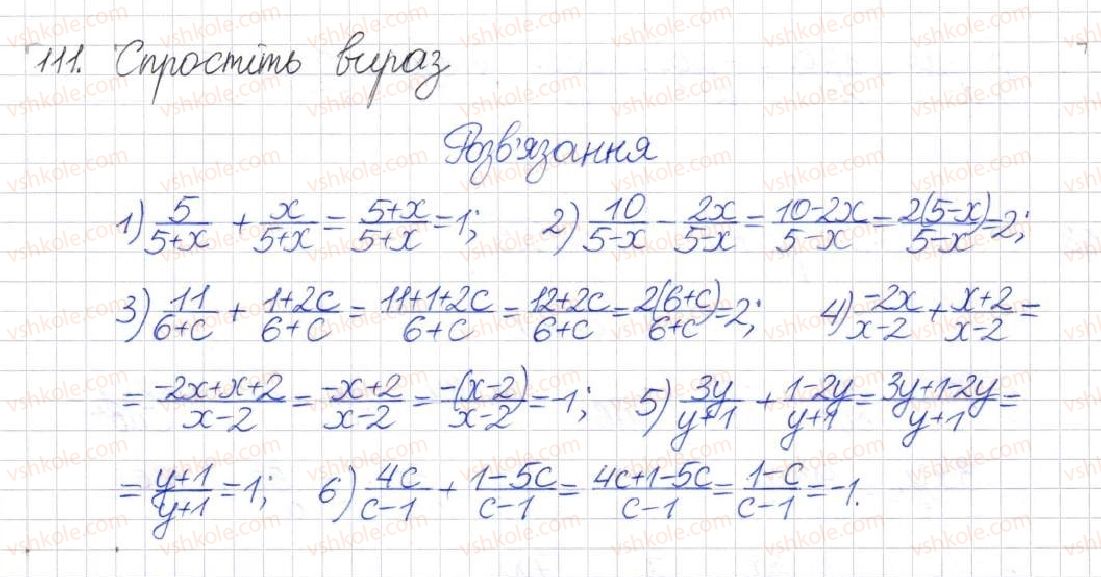 111. Спростіть вираз
Розв'язання
1) 5/(5+x) + x/(5+x) = (5+x)/(5+x) = 1; 2) 10/(5-x) - 2x/(5-x) = (10-2x)/(5-x) = 2(5-x)/(5-x) = 2;
3) 11/(6+c) + (1+2c)/(6+c) = (11+1+2c)/(6+c) = (12+2c)/(6+c) = 2(6+c)/(6+c) = 2; 4) (-2x)/(x-2) + (x+2)/(x-2) =
= (-2x+x+2)/(x-2) = (-x+2)/(x-2) = -(x-2)/(x-2) = -1; 5) 3y/(y+1) + (1-2y)/(y+1) = (3y+1-2y)/(y+1) =
= (y+1)/(y+1) = 1; 6) 4c/(c-1) + (1-5c)/(c-1) = (4c+1-5c)/(c-1) = (1-c)/(c-1) = -1.